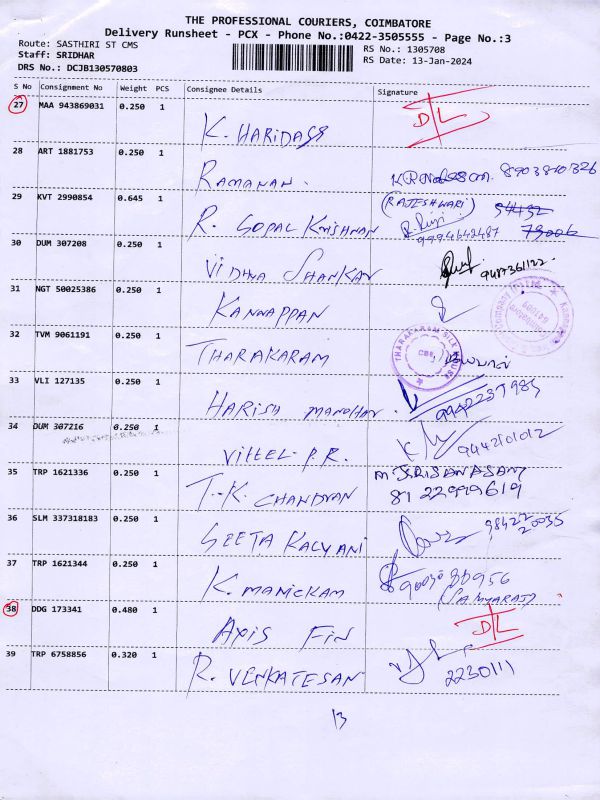 THE PROFESSIONAL COURIERS, COIMBATORE
Delivery Runsheet - PCX - Phone No.:0422-3505555 - Page No.:3
Route: SASTHIRI ST CMS
RS No.: 1305708
Staff: SRIDHAR
RS Date: 13-Jan-2024
DRS No.: DCJB130570803
S No Consignment No Weight PCS Consignee Details Signature
27 MAA 943869031 0.250 1 K. HARIDASS D/L
28 ART 1881753 0.250 1 RAMANAN.
29 KVT 2990854 0.645 1 R. GOPAL KRISHNAN (RAJESHWARI)
9994642487
30 DUM 307208 0.250 1 VIDHYA SHANKAR 9487361122
31 NGT 50025386 0.250 1 KANNAPPAN
32 TVM 9061191 0.250 1 THARAKARAM THARAKARAM SILK HOUSE CBE
33 VLI 127135 0.250 1 HARISH MANOHAR.
34 DUM 307216 0.250 1 VITTEL P.R.
35 TRP 1621336 0.250 1 T.K. CHANDRAN
8122999619
36 SLM 337318183 0.250 1 SEETA KALYANI 98422
20035
37 TRP 1621344 0.250 1 K. MANICKAM
38 DDG 173341 0.480 1 AXIS FIN D/L
39 TRP 6758856 0.320 1 R. VENKATESAN 2230111
13